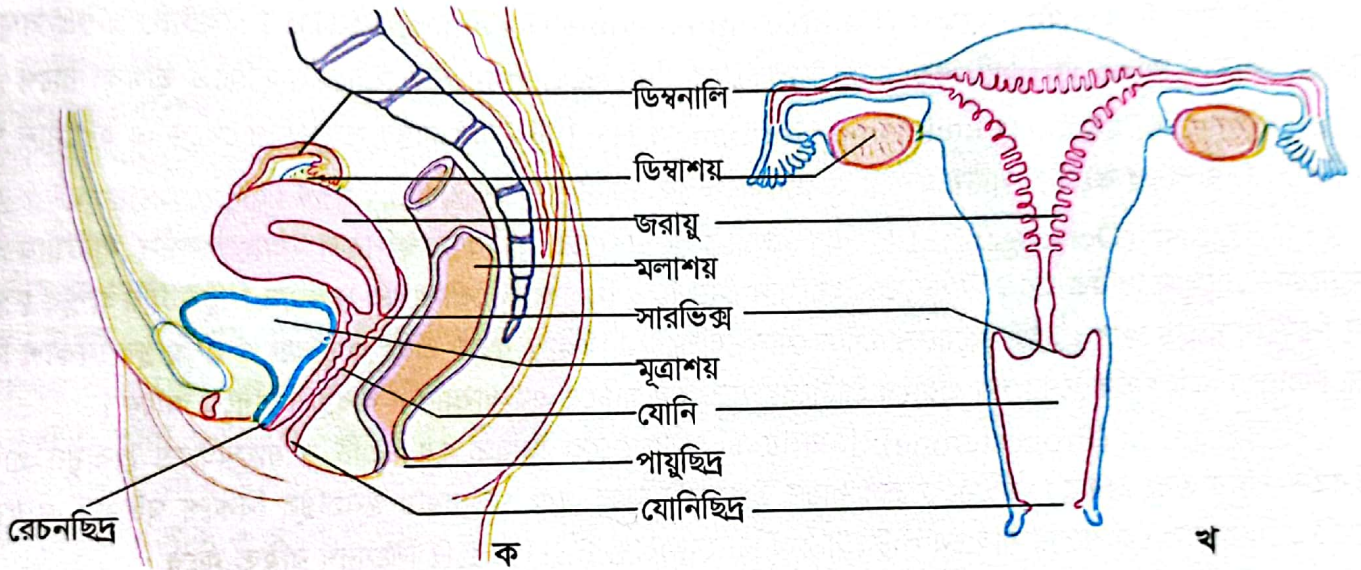 ডিম্বনালি
ডিম্বাশয়
জরায়ু
মলাশয়
সারভিক্স
মূত্রাশয়
যোনি
পায়ুছিদ্র
যোনিছিদ্র
রেচনছিদ্র
ক
খ